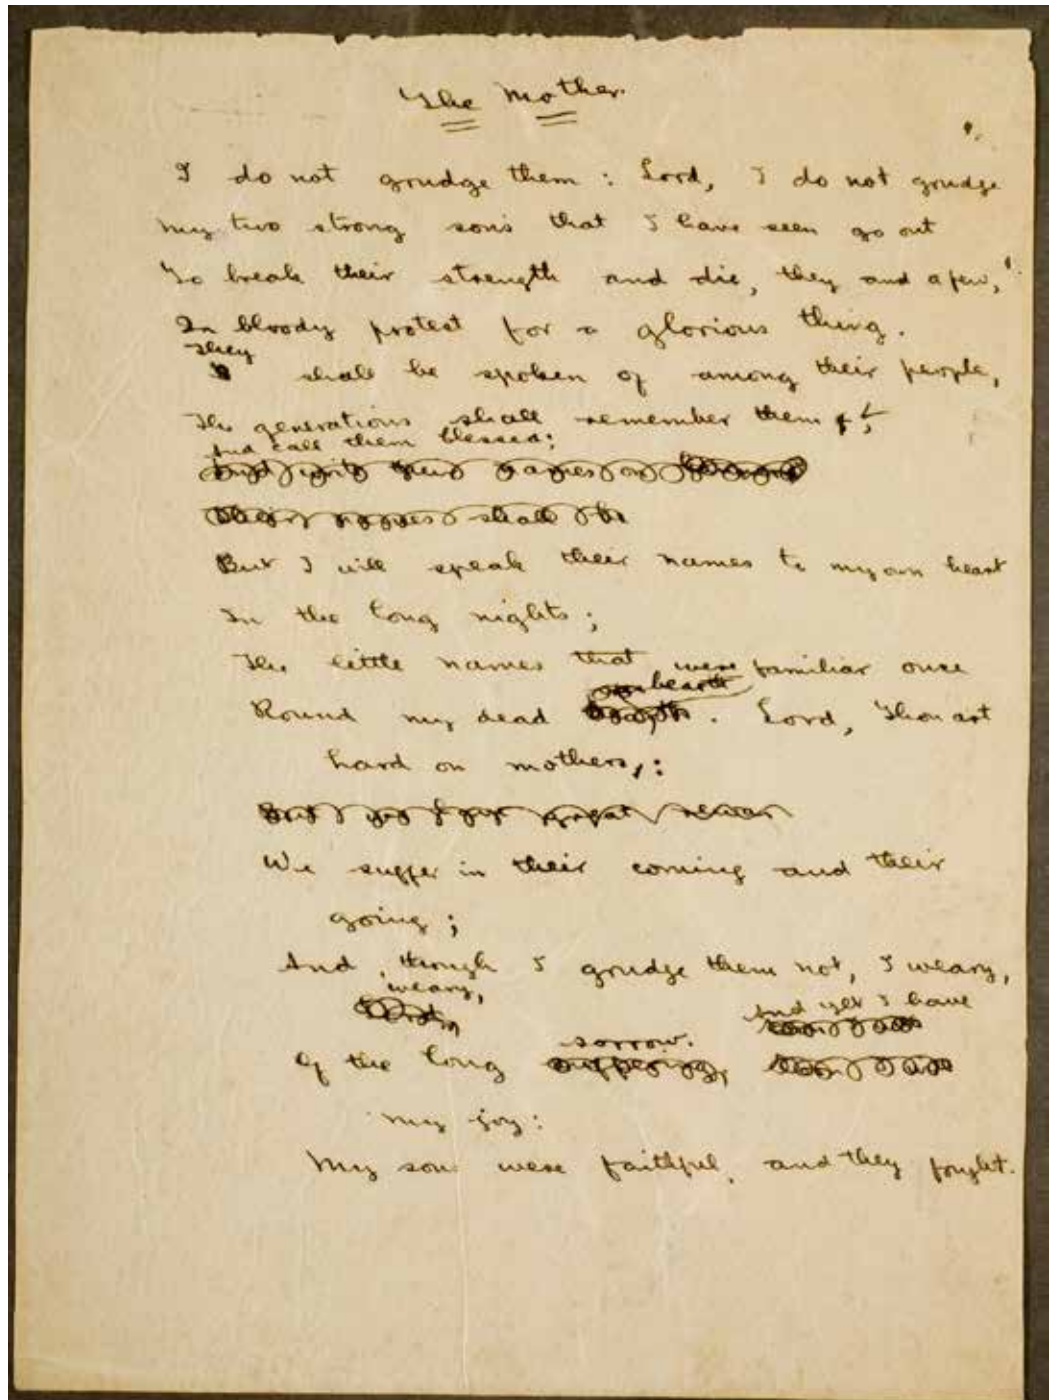 The Mother.
I do not grudge them : Lord, I do not grudge
My two strong sons that I have seen go out
To break their strength and die, they and a few,
In bloody protest for a glorious thing.
They
shall be spoken of among their people,
The generations shall remember them,
And call them blessed;
And write their names on
Their names shall be
But I will speak their names to my own heart
In the long nights;
The little names that were familiar once
hearth
Round my dead . Lord, Thou art
hard on mothers:
We suffer in their coming and their
going;
And, though I grudge them not, I weary,
weary,
And yet I have
sorrow.
Of the long suffering,
my joy:
My sons were faithful, and they fought.